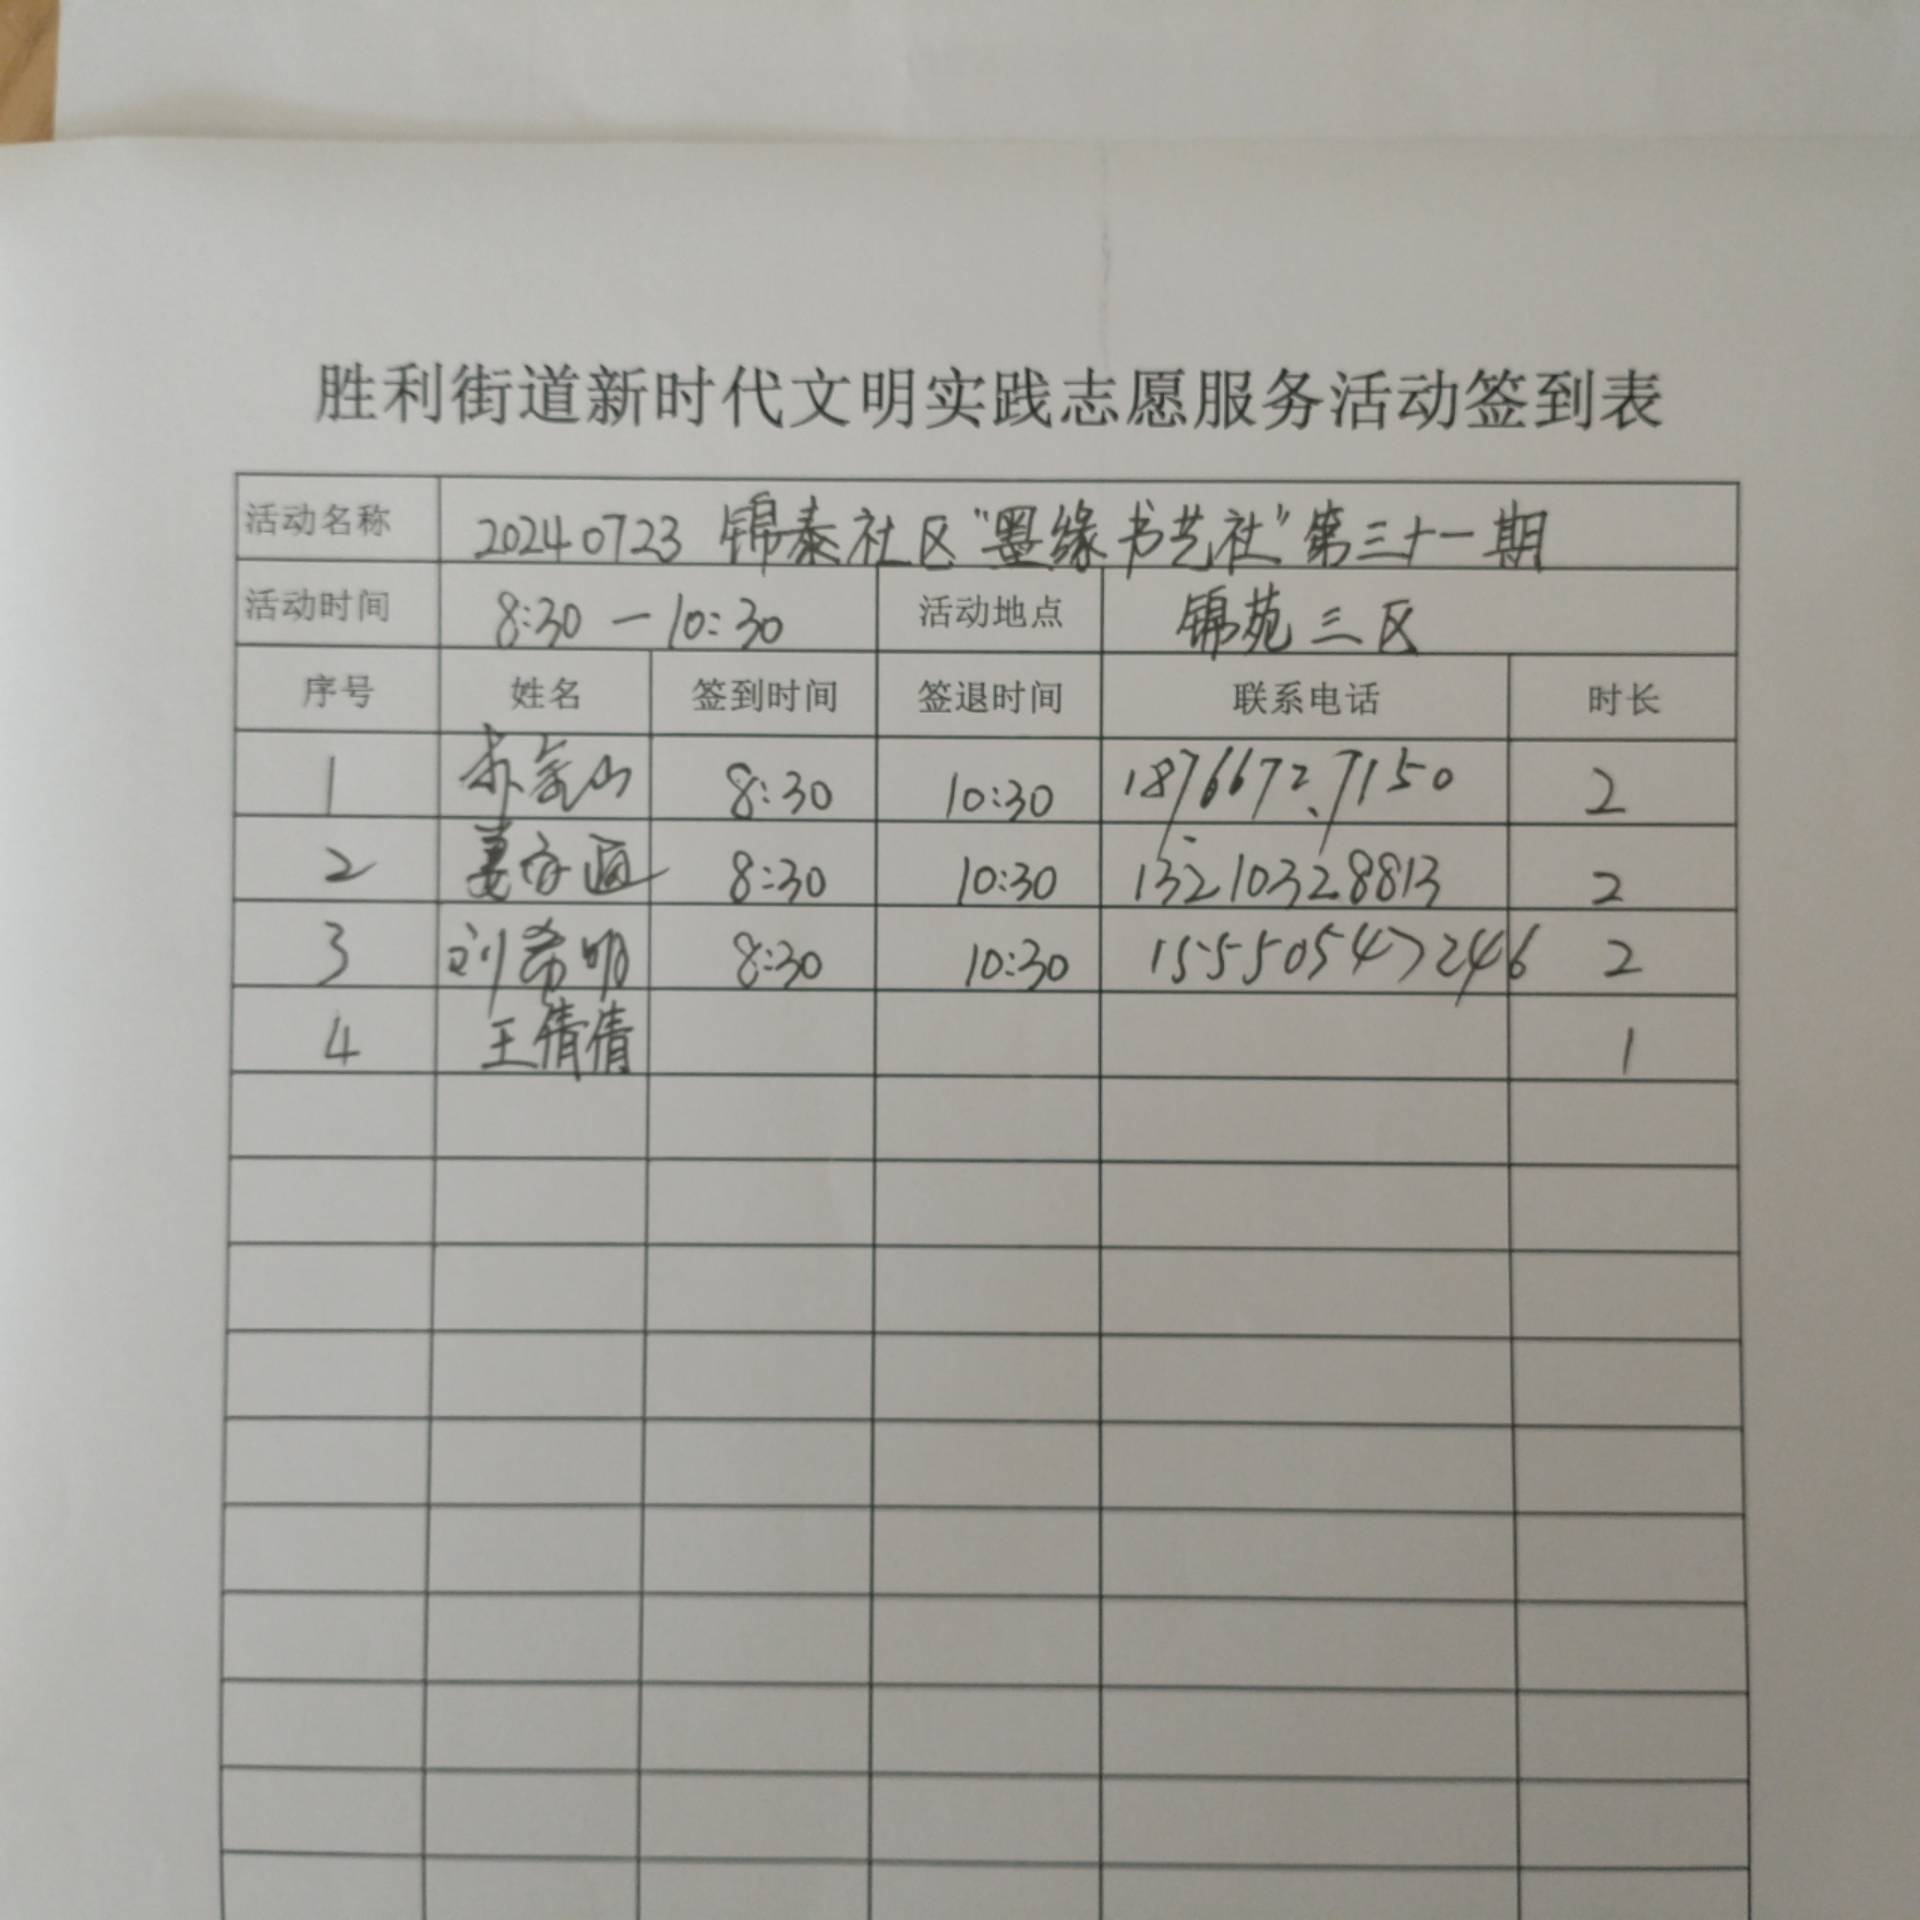 胜利街道新时代文明实践志愿服务活动签到表
活动名称 20240723 锦泰社区“墨缘书艺社”第三十一期
活动时间 8:30 — 10:30 活动地点 锦苑三区
序号 姓名 签到时间 签退时间 联系电话 时长
1 8:30 10:30 18766727150 2
2 姜 8:30 10:30 13210328813 2
3 刘希明 8:30 10:30 15550547246 2
4 王倩倩 1